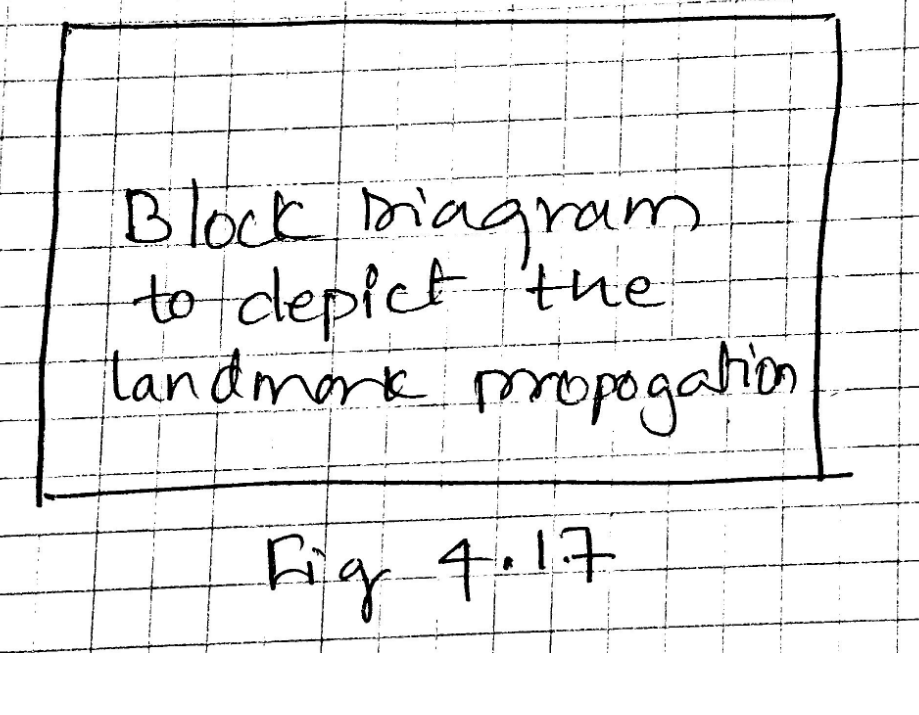 Block Diagram
to depict the
landmark propogation
Fig 4.17